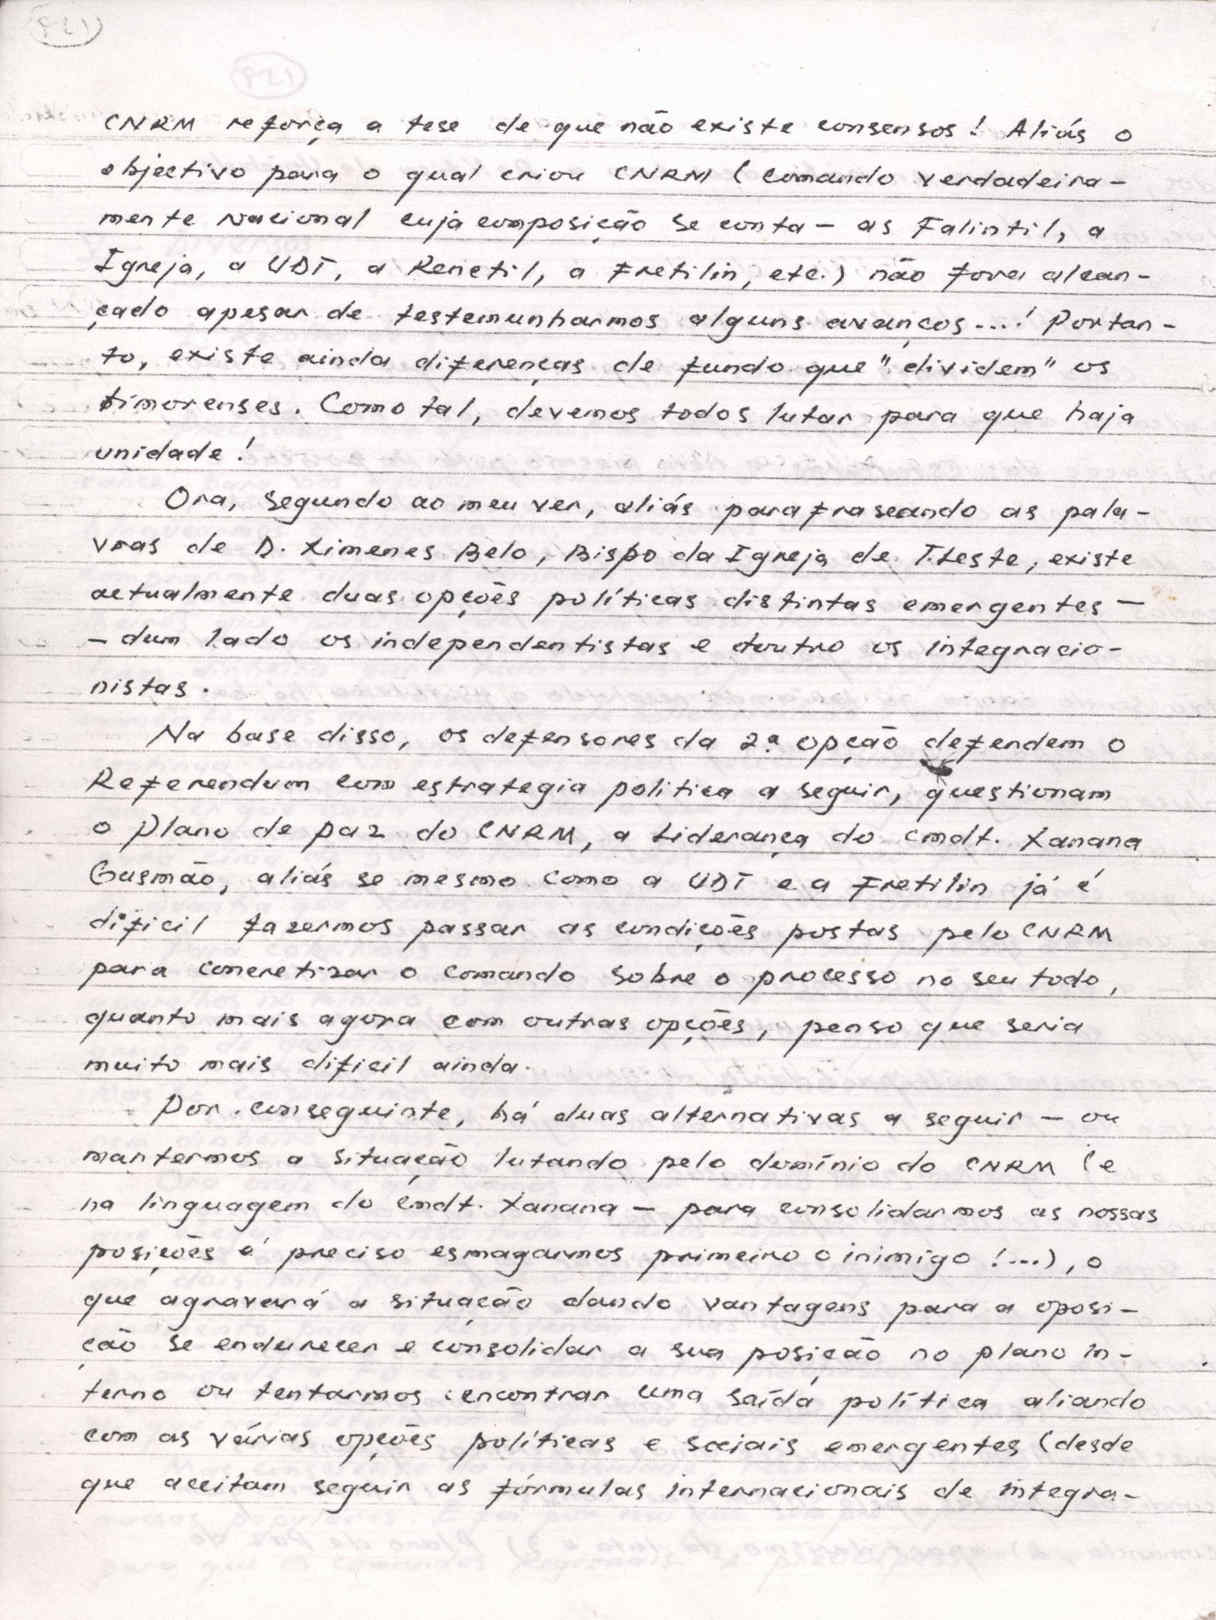 CNRM reforça a tese de que não existe consensos! Aliás o
objectivo para o qual criou CNRM (comando verdadeira-
mente Nacional cuja composição se conta - as Falintil, a
Igreja, a UDT, a Renetil, a Fretilin, etc.) não fora alcan-
çado apesar de testemunharmos alguns avanços...! Portan-
to, existe ainda diferenças de fundo que "dividem" os
timorenses. Como tal, devemos todos lutar para que haja
unidade!
Ora, segundo ao meu ver, aliás parafraseando as pala-
vras de D. Ximenes Belo, Bispo da Igreja de T.Leste, existe
actualmente duas opções políticas distintas emergentes -
- dum lado os independentistas e doutro os integracio-
nistas.
Na base disso, os defensores da 2ª opção defendem o
Referendum com estrategia politica a seguir, questionam
o plano de paz do CNRM, a Liderança do cmdt. Xanana
Gusmão, aliás se mesmo como a UDT e a Fretilin já é
dificil fazermos passar as condições postas pelo CNRM
para concretizar o comando sobre o processo no seu todo,
quanto mais agora com outras opções, penso que seria
muito mais dificil ainda.
Por conseguinte, há duas alternativas a seguir - ou
mantermos a situação lutando pelo domínio do CNRM (e
na linguagem do Cmdt. Xanana - para consolidarmos as nossas
posições é preciso esmagarmos primeiro o inimigo!...), o
que agravará a situação dando vantagens para a oposi-
ção se endurecer e consolidar a sua posição no plano in-
terno ou tentarmos encontrar uma saída política aliando
com as várias opções políticas e sociais emergentes (desde
que aceitam seguir as fórmulas internacionais de integra-